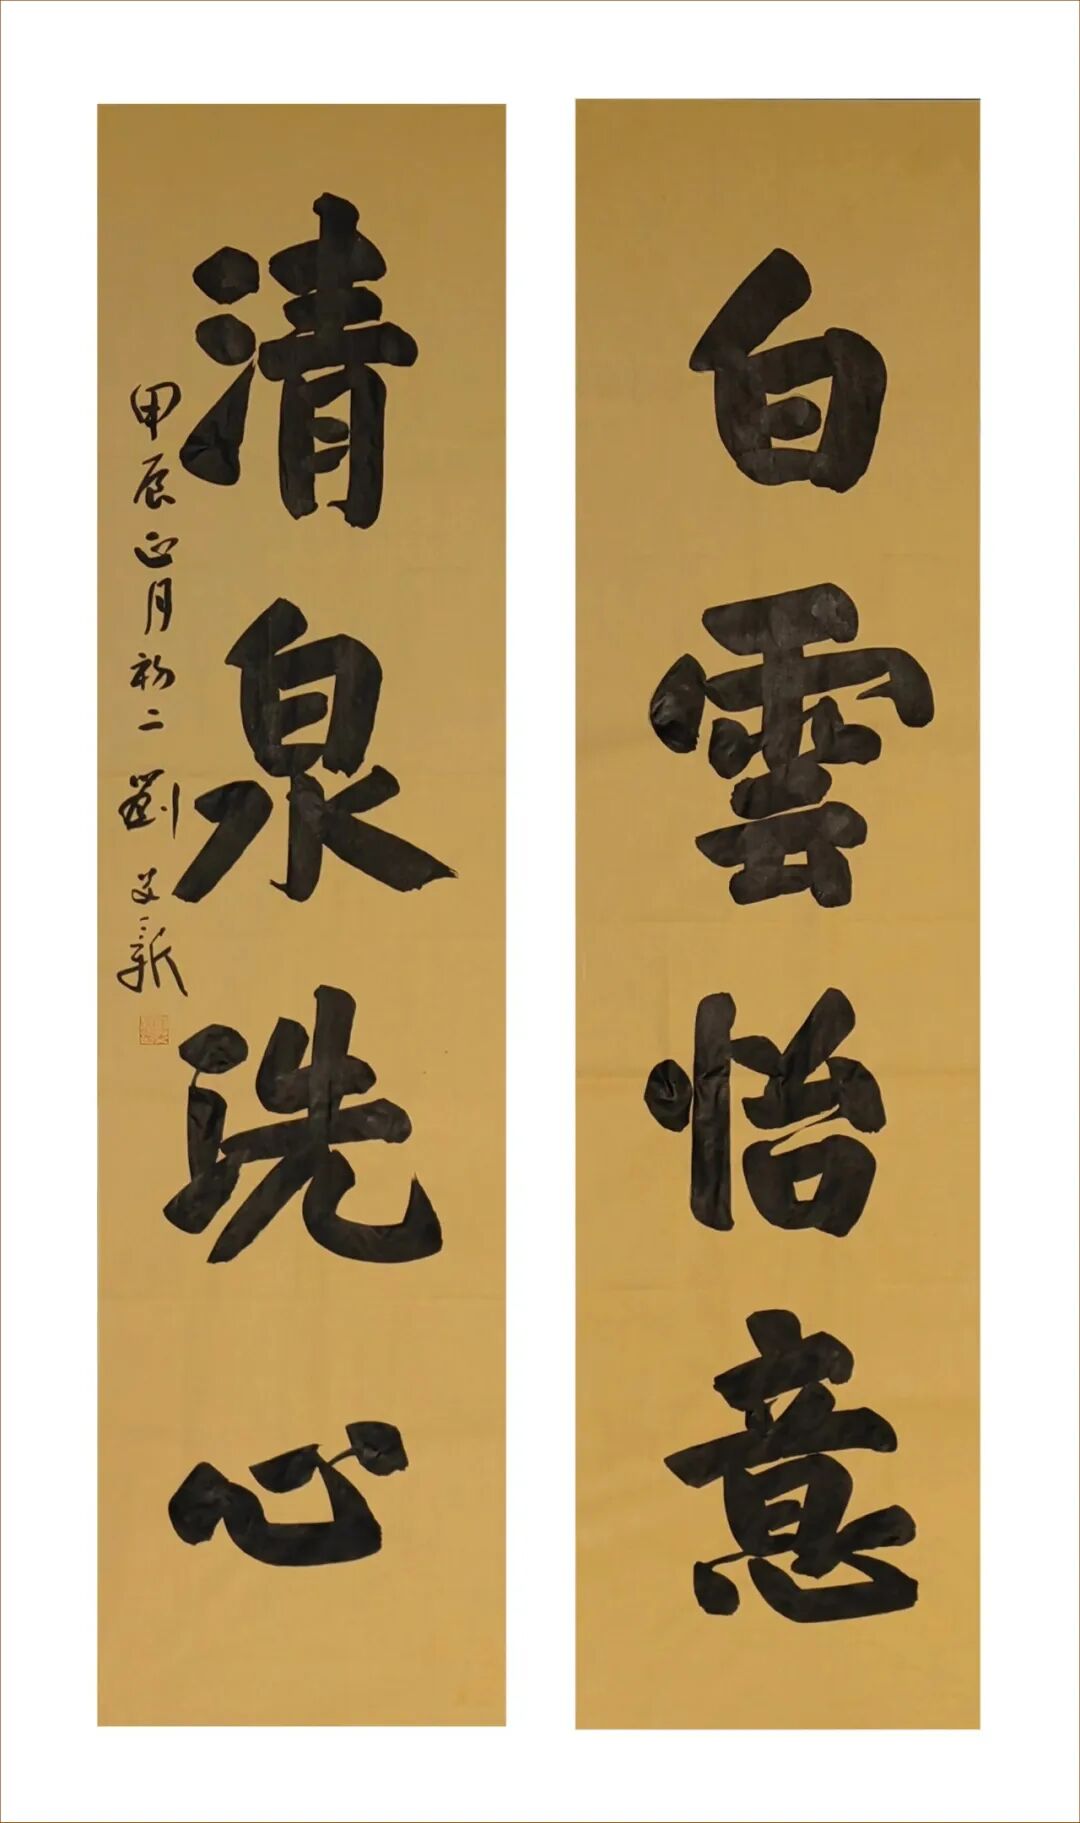 白雲怡意
清泉洗心
甲辰正月初二劉文新